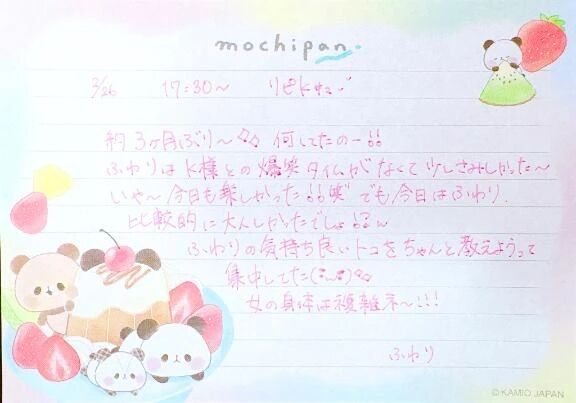 mochipan.
3/26 17:30〜 リピK様
約3ヶ月ぶり〜 何してたのー!!
ふわりはK様との爆笑タイムがなくて少しさみしかった〜
いや〜今日も楽しかった!!笑 でも今日はふわり、
比較的に大人しかったでしょ!?w
ふわりの気持ち良いトコをちゃんと教えようって
集中してた
女の身体は複雑ネ〜!!!
ふわり
©KAMIO JAPAN